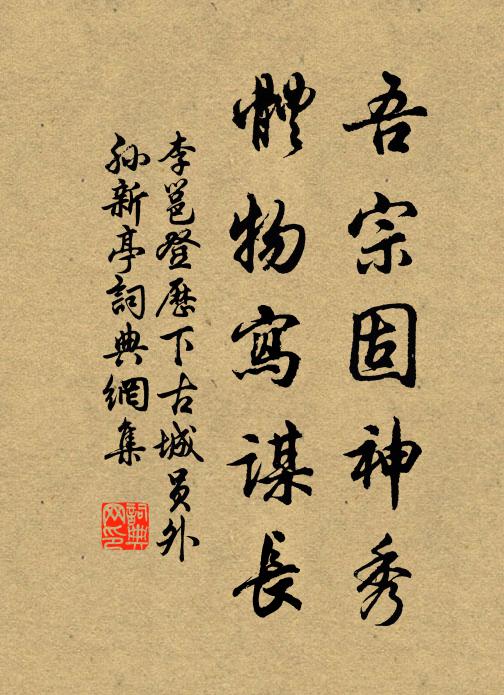 吾宗固神秀
體物寫謀長
李邕登歷下古城員外
孫新亭詞典網集
詞典網印